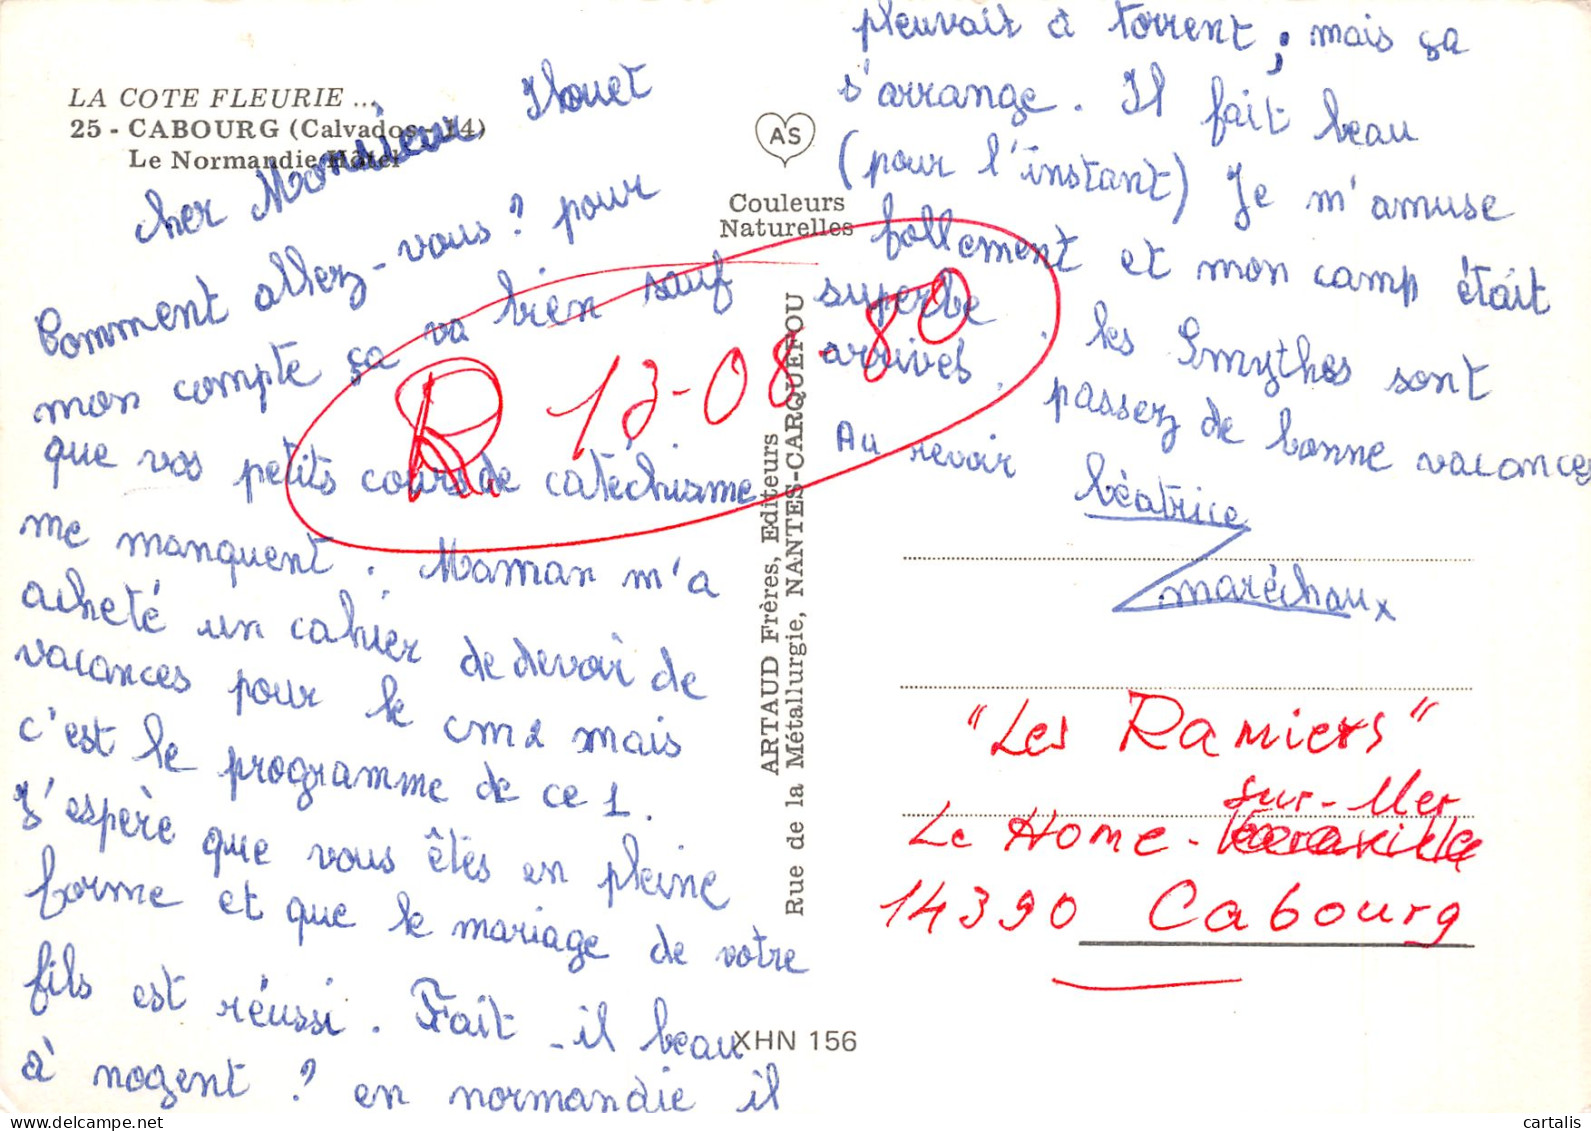 LA COTE FLEURIE ...
25 - CABOURG (Calvados-14)
Le Normandie Hôtel
cher Monsieur
Comment allez-vous ? pour
mon compte ça va bien sauf
que vos petits cours de catéchisme
me manquent. Maman m'a
acheté un cahier de devoir de
vacances pour le cm2 mais
c'est le programme de ce 1.
J'espère que vous êtes en pleine
forme et que le mariage de votre
fils est réussi. Fait-il beau
à nogent ? en normandie il
pleuvait à torrent ; mais ça
s'arrange. Il fait beau
(pour l'instant) Je m'amuse
follement et mon camp était
superbe. les Smythes sont
arrivés. passez de bonne vacances
Au revoir
béatrice
maréchaux
AS
Couleurs
Naturelles
ARTAUD Frères, Editeurs
Rue de la Métallurgie, NANTES-CARQUEFOU
R 13-08-80
"Les Ramiers"
sur-Mer
Le Home -
14390 Cabourg
XHN 156
cartalis
delcampe.net